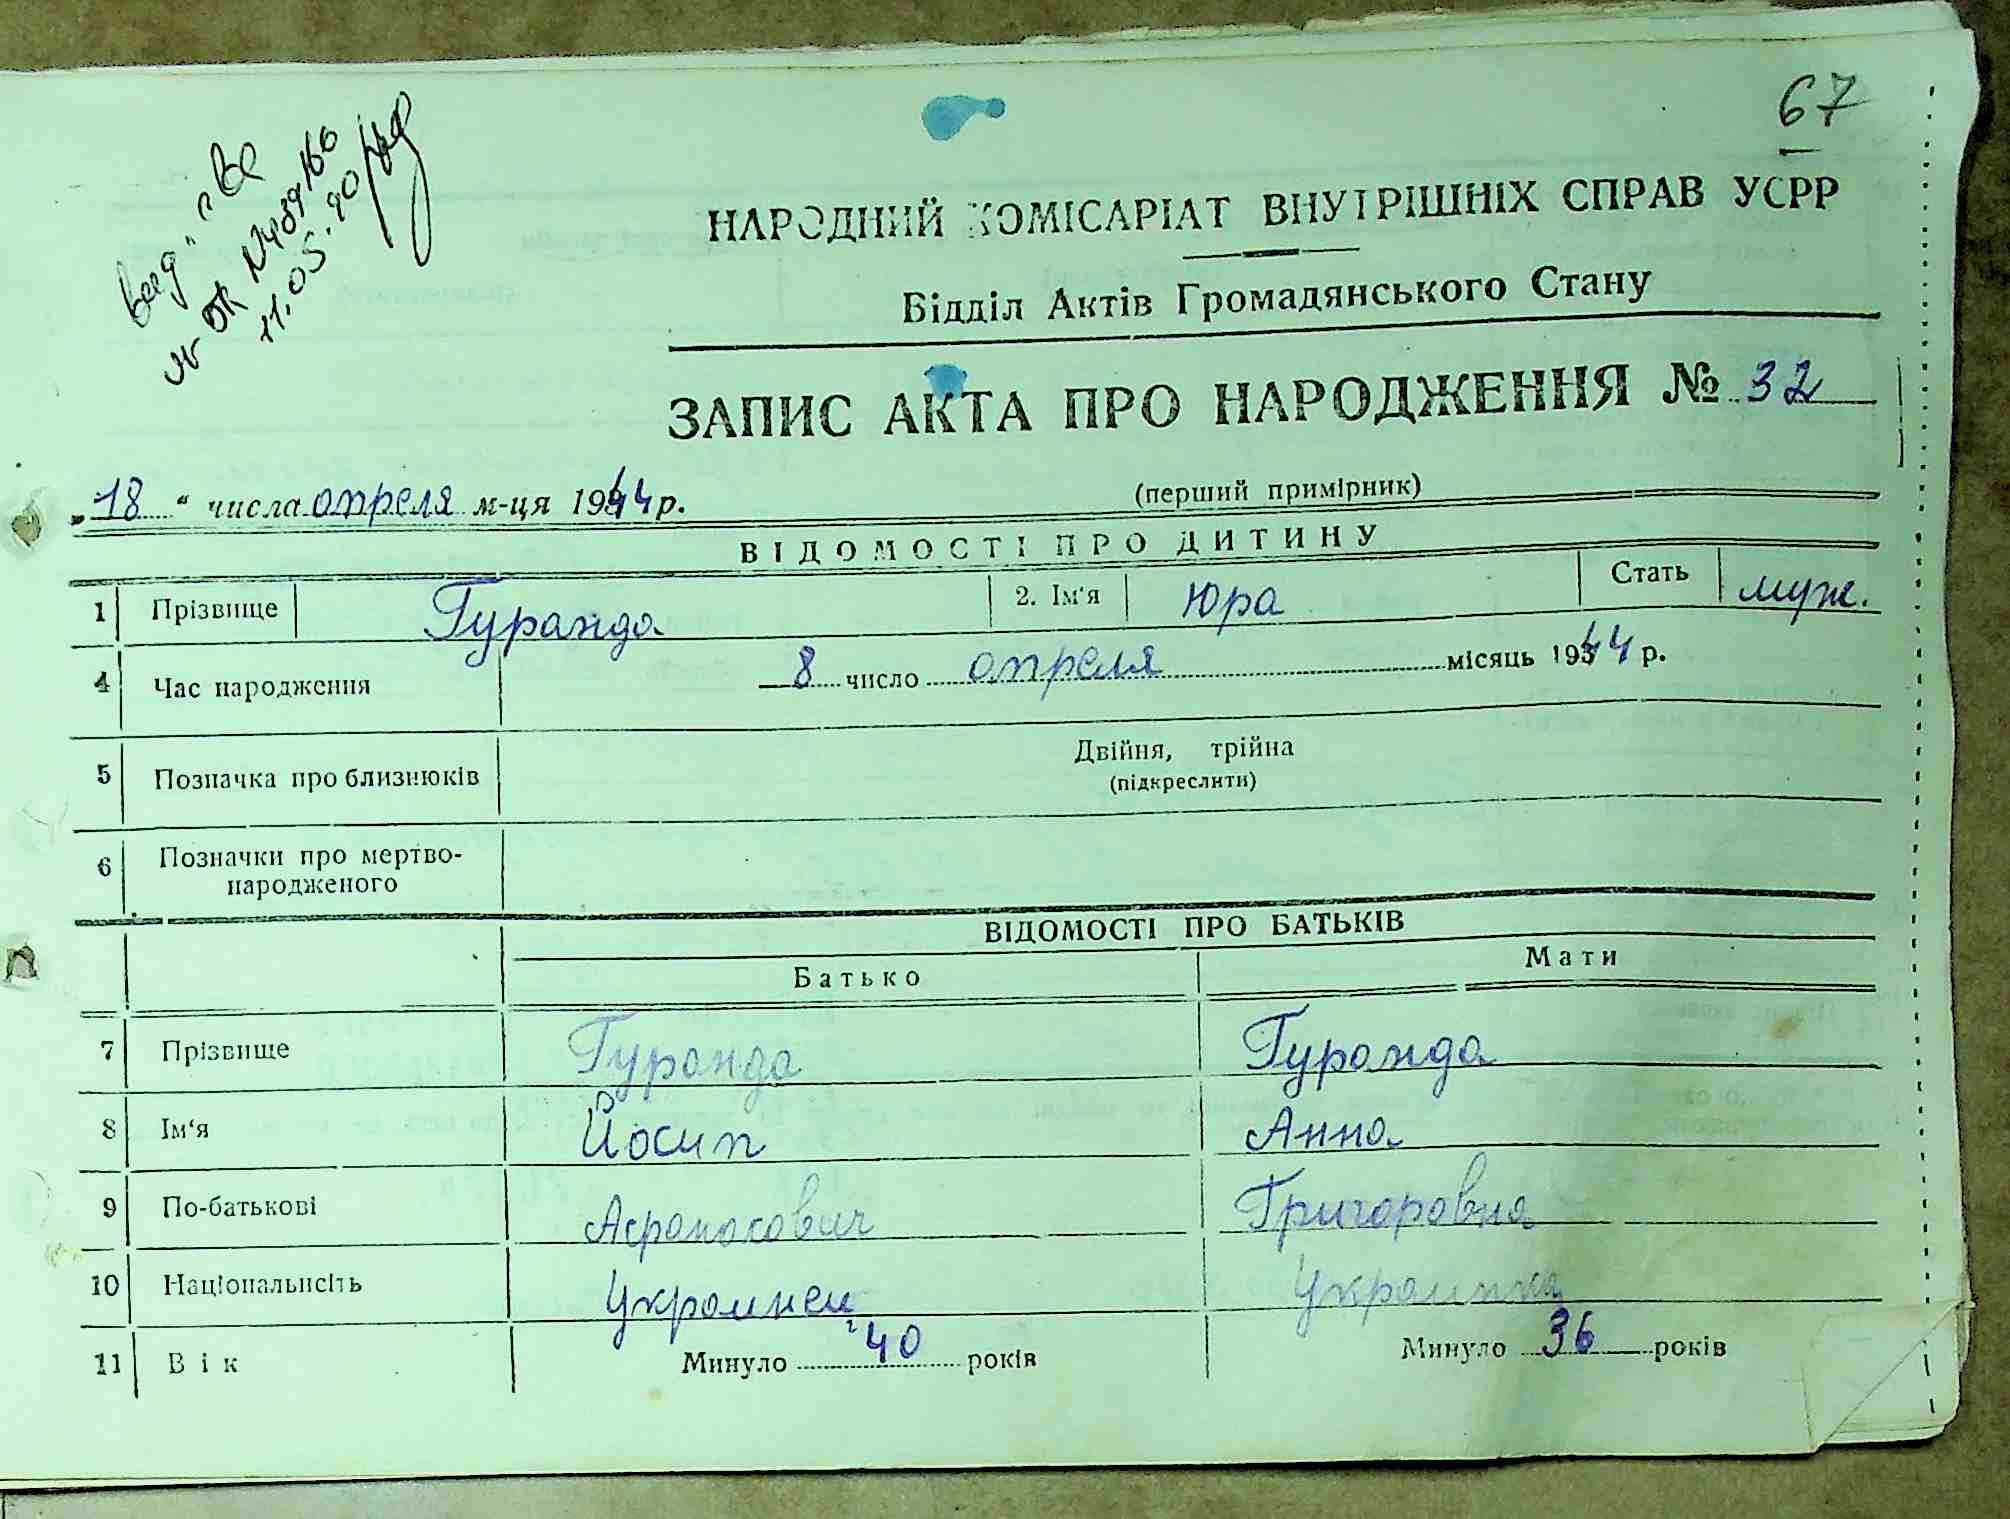 67
11.05.90
НАРОДНИЙ КОМІСАРІАТ ВНУТРІШНІХ СПРАВ УСРР
Відділ Актів Громадянського Стану
ЗАПИС АКТА ПРО НАРОДЖЕННЯ № 32
„18“ числа апреля м-ця 1944 р. (перший примірник)
ВІДОМОСТІ ПРО ДИТИНУ
1 Прізвище Гуранда 2. Ім'я Юра Стать муж.
4 Час народження 8 число апреля місяць 1944 р.
5 Позначка про близнюків Двійня, трійна
(підкреслити)
6 Позначки про мертво-
народженого
ВІДОМОСТІ ПРО БАТЬКІВ
Батько Мати
7 Прізвище Гуранда Гуранда
8 Ім'я Йосип Анна
9 По-батькові Григоровна
10 Національність Украинец Украинка
11 Вік Минуло 40 років Минуло 36 років